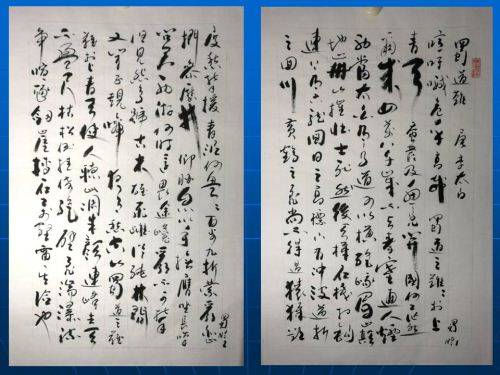 蜀道難 唐李太白
噫吁嚱危乎高哉 蜀道之難難於上
青天 蠶叢及魚鳧 開國何茫然
爾來四萬八千歲 不與秦塞通人煙
西當太白有鳥道 可以橫絕峨眉巔
地崩山摧壯士死 然後天梯石棧相鉤
連 上有六龍回日之高標 下有沖波逆折
之回川 黃鶴之飛尚不得過 猿猱欲
度愁攀援 青泥何盤盤 百步九折縈巖巒
捫參歷井仰脅息 以手撫膺坐長嘆
問君西遊何時還 畏途巉巖不可攀
但見悲鳥號古木 雄飛雌從繞林間
又聞子規啼 夜月愁空山 蜀道之難
難於上青天 使人聽此凋朱顏 連峰去天
不盈尺 枯松倒掛倚絕壁 飛湍瀑流
爭喧豗 砯崖轉石萬壑雷 其險也